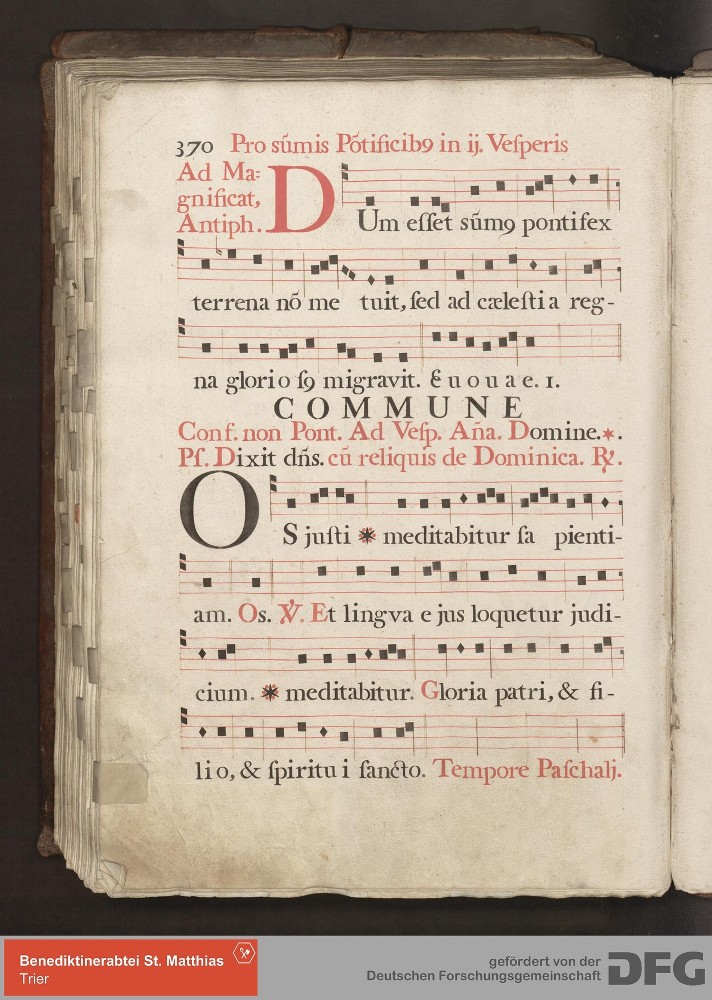 370 Pro sūmis Põtificibꝯ in ij. Veſperis
Ad Ma=
gnificat,
Antiph.
DUm eſſet sūmꝯ pontifex
terrena nõ me tuit, ſed ad cæleſti a reg-
na glorio ſꝯ migravit. E u o u a e. 1.
COMMUNE
Conf. non Pont. Ad Veſp. Aña. Domine.*.
Pſ. Dixit dñs. cū reliquis de Dominica. ℟.
OS juſti * meditabitur ſa pienti-
am. Os. ℣. Et lingva e jus loquetur judi-
cium. * meditabitur. Gloria patri, & fi-
li o, & ſpiritu i ſancto. Tempore Paſchalj.
Benediktinerabtei St. Matthias
Trier
gefördert von der
Deutschen Forschungsgemeinschaft
DFG